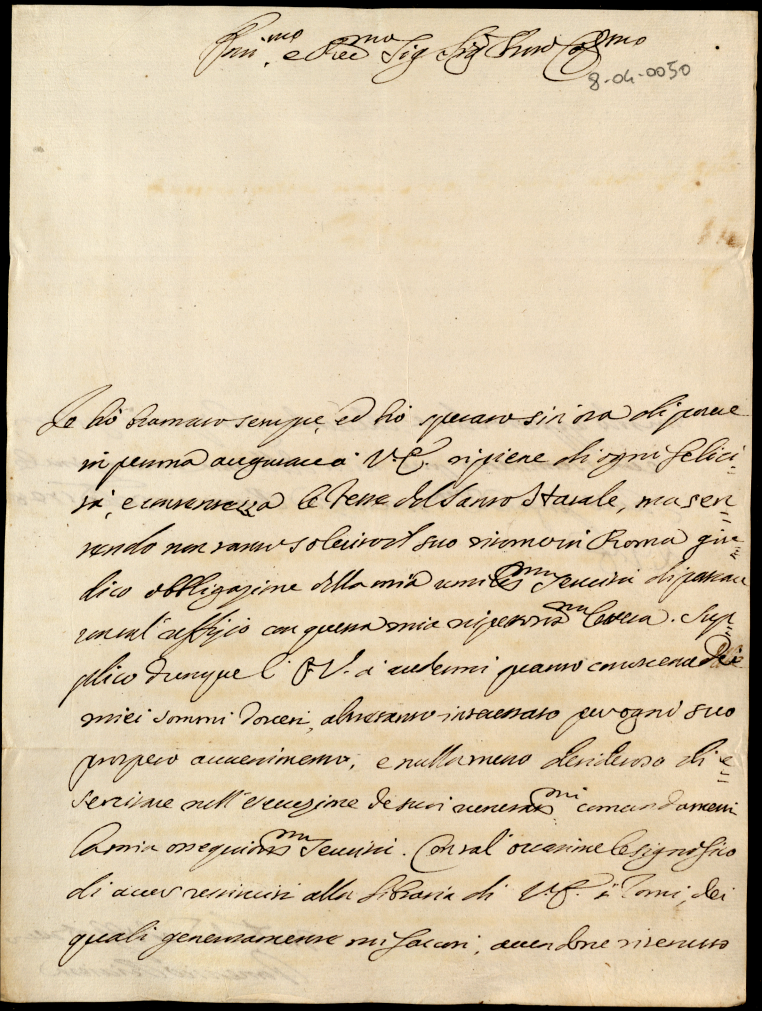 Ill.mo, e Rev.mo Sig. Sig. Pron Col.mo
8-04-0050
Io hò bramato sempre, ed hò sperato sin ora di potere
in penna augurare à V.E. ripiene di ogni felici=
tà, e contentezza le Feste del Santo Natale, ma sen=
tendo non tanto sollecito il suo ritorno in Roma giu=
dico obbligazione della mia umiliss.ma servitù di passar
con tal' uffizio con questa mia rispettosiss.ma lettera. Sup=
plico dunque l' E.V. à credermi quanto conoscente dei
miei sommi doveri, altrettanto interessato per ogni suo
prospero avvenimento, e nulla meno desideroso di e=
sercitare nell' esecuzione de suoi veneratiss.mi comandamenti
la mia ossequiosiss.ma servitù. Con tal' occasione le significo
di aver restituiti alla libraria di V.E. i Tomi, dei
quali generosamente mi favorì, avendone ritenuto